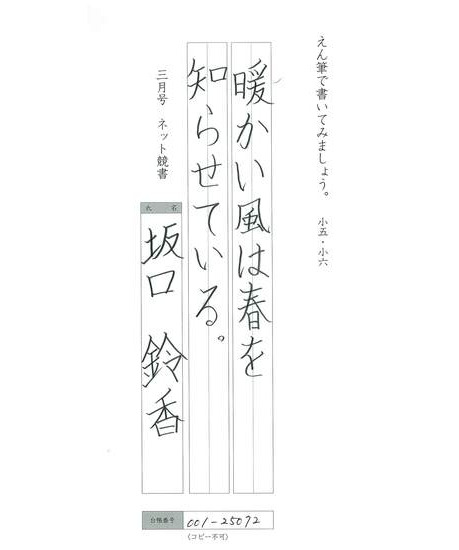 えん筆で書いてみましょう。 小五・小六
暖かい風は春を
知らせている。
三月号 ネット競書
氏 名
坂口 鈴香
台帳番号 001-25072
(コピー不可)